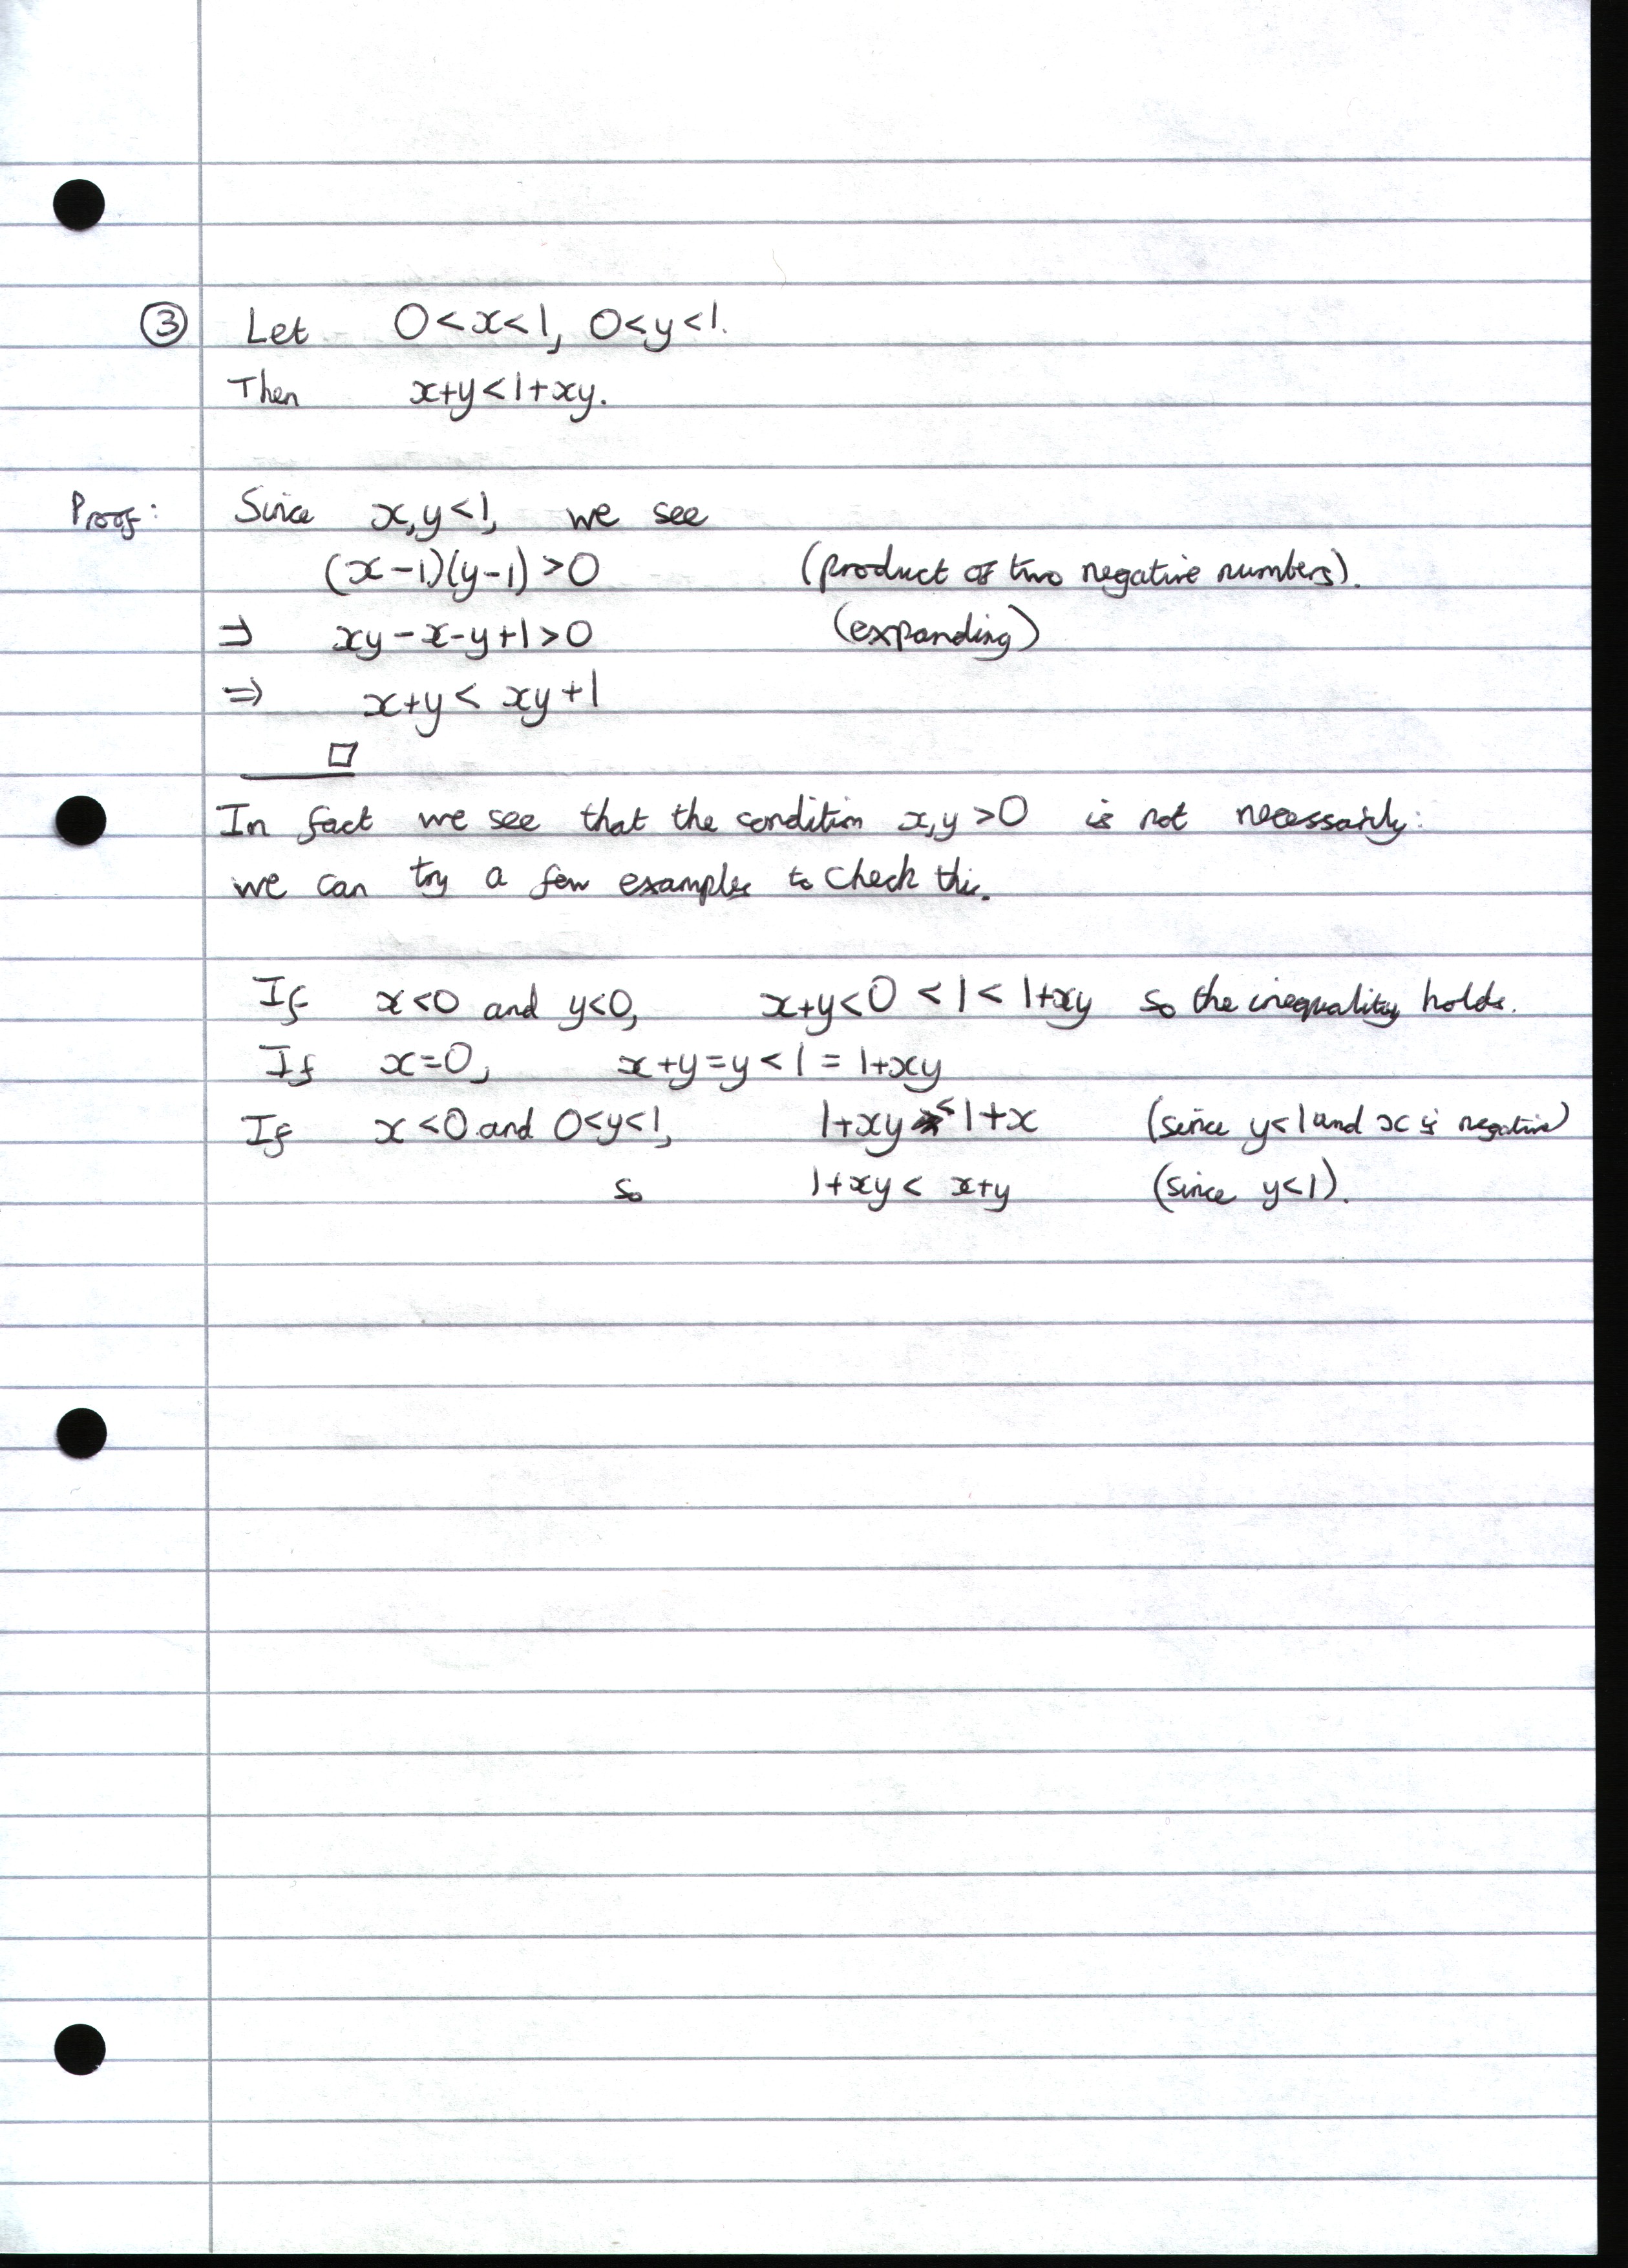 ③ Let 0<x<1, 0<y<1.
Then x+y<1+xy.
Proof: Since x,y<1, we see
(x-1)(y-1)>0 (product of two negative numbers).
⇒ xy-x-y+1>0 (expanding)
⇒ x+y< xy+1
□
In fact we see that the condition x,y>0 is not necessarily:
we can try a few examples to check this.
If x<0 and y<0, x+y<0<1<1+xy so the inequality holds.
If x=0, x+y=y<1=1+xy
If x<0 and 0<y<1, 1+xy < 1+x (since y<1 and x is negative)
so 1+xy < x+y (since y<1).